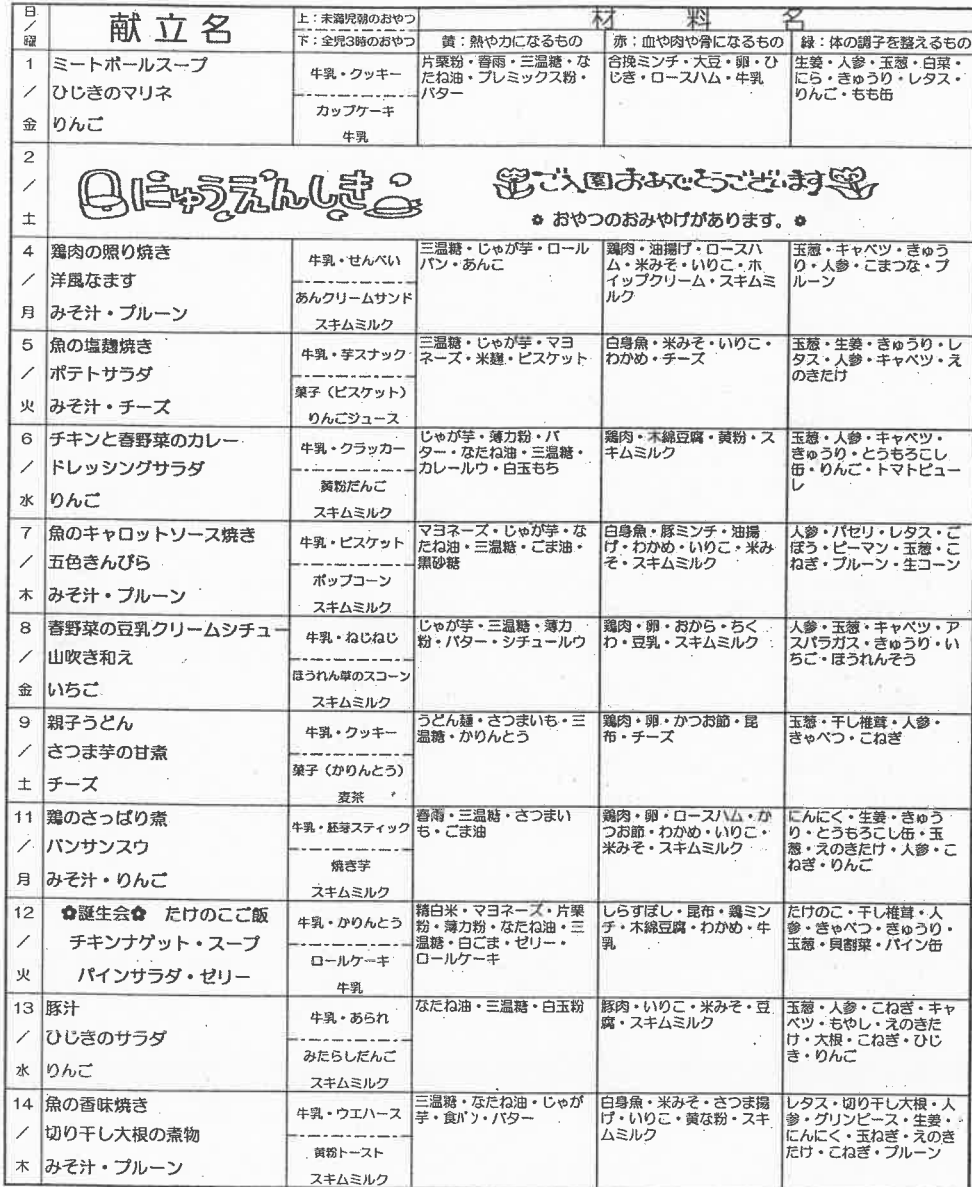 日/曜
献立名
上：未満児朝のおやつ
下：全児3時のおやつ
材料名
黄：熱や力になるもの
赤：血や肉や骨になるもの
緑：体の調子を整えるもの
1/金
ミートボールスープ
ひじきのマリネ
りんご
牛乳・クッキー
カップケーキ
牛乳
片栗粉・春雨・三温糖・な
たね油・プレミックス粉・
バター
合挽ミンチ・大豆・卵・ひ
じき・ロースハム・牛乳
生姜・人参・玉葱・白菜・
にら・きゅうり・レタス・
りんご・もも缶
2/土
にゅうえんしき
ご入園おめでとうございます
おやつのおみやげがあります。
4/月
鶏肉の照り焼き
洋風なます
みそ汁・プルーン
牛乳・せんべい
あんクリームサンド
スキムミルク
三温糖・じゃが芋・ロール
パン・あんこ
鶏肉・油揚げ・ロースハ
ム・米みそ・いりこ・ホ
イップクリーム・スキムミ
ルク
玉葱・キャベツ・きゅう
り・人参・こまつな・プ
ルーン
5/火
魚の塩麹焼き
ポテトサラダ
みそ汁・チーズ
牛乳・芋スナック
菓子（ビスケット）
りんごジュース
三温糖・じゃが芋・マヨ
ネーズ・米麹・ビスケット
白身魚・米みそ・いりこ・
わかめ・チーズ
玉葱・生姜・きゅうり・レ
タス・人参・キャベツ・え
のきたけ
6/水
チキンと春野菜のカレー
ドレッシングサラダ
りんご
牛乳・クラッカー
黄粉だんご
スキムミルク
じゃが芋・薄力粉・バ
ター・なたね油・三温糖・
カレールウ・白玉もち
鶏肉・木綿豆腐・黄粉・ス
キムミルク
玉葱・人参・キャベツ・
きゅうり・とうもろこし
缶・りんご・トマトピュー
レ
7/木
魚のキャロットソース焼き
五色きんぴら
みそ汁・プルーン
牛乳・ビスケット
ポップコーン
スキムミルク
マヨネーズ・じゃが芋・な
たね油・三温糖・ごま油・
黒砂糖
白身魚・豚ミンチ・油揚
げ・わかめ・いりこ・米み
そ・スキムミルク
人参・パセリ・レタス・ご
ぼう・ピーマン・玉葱・こ
ねぎ・プルーン・生コーン
8/金
春野菜の豆乳クリームシチュー
山吹き和え
いちご
牛乳・ねじねじ
ほうれん草のスコーン
スキムミルク
じゃが芋・三温糖・薄力
粉・バター・シチュールウ
鶏肉・卵・おから・ちく
わ・豆乳・スキムミルク
人参・玉葱・キャベツ・ア
スパラガス・きゅうり・い
ちご・ほうれんそう
9/土
親子うどん
さつま芋の甘煮
チーズ
牛乳・クッキー
菓子（かりんとう）
麦茶
うどん麺・さつまいも・三
温糖・かりんとう
鶏肉・卵・かつお節・昆
布・チーズ
玉葱・干し椎茸・人参・
きゃべつ・こねぎ
11/月
鶏のさっぱり煮
バンサンスウ
みそ汁・りんご
牛乳・胚芽スティック
焼き芋
スキムミルク
春雨・三温糖・さつまい
も・ごま油
鶏肉・卵・ロースハム・か
つお節・わかめ・いりこ・
米みそ・スキムミルク
にんにく・生姜・きゅう
り・とうもろこし缶・玉
葱・えのきたけ・人参・こ
ねぎ・りんご
12/火
✿誕生会✿　たけのこご飯
チキンナゲット・スープ
パインサラダ・ゼリー
牛乳・かりんとう
ロールケーキ
牛乳
精白米・マヨネーズ・片栗
粉・薄力粉・なたね油・三
温糖・白ごま・ゼリー・
ロールケーキ
しらすぼし・昆布・鶏ミン
チ・木綿豆腐・わかめ・牛
乳
たけのこ・干し椎茸・人
参・きゃべつ・きゅうり・
玉葱・貝割菜・パイン缶
13/水
豚汁
ひじきのサラダ
りんご
牛乳・あられ
みたらしだんご
スキムミルク
なたね油・三温糖・白玉粉
豚肉・いりこ・米みそ・豆
腐・スキムミルク
玉葱・人参・こねぎ・キャ
ベツ・もやし・えのきた
け・大根・こねぎ・ひじ
き・りんご
14/木
魚の香味焼き
切り干し大根の煮物
みそ汁・プルーン
牛乳・ウエハース
黄粉トースト
スキムミルク
三温糖・なたね油・じゃが
芋・食パン・バター
白身魚・米みそ・さつま揚
げ・いりこ・黄な粉・スキ
ムミルク
レタス・切り干し大根・人
参・グリンピース・生姜・
にんにく・玉ねぎ・えのき
たけ・こねぎ・プルーン